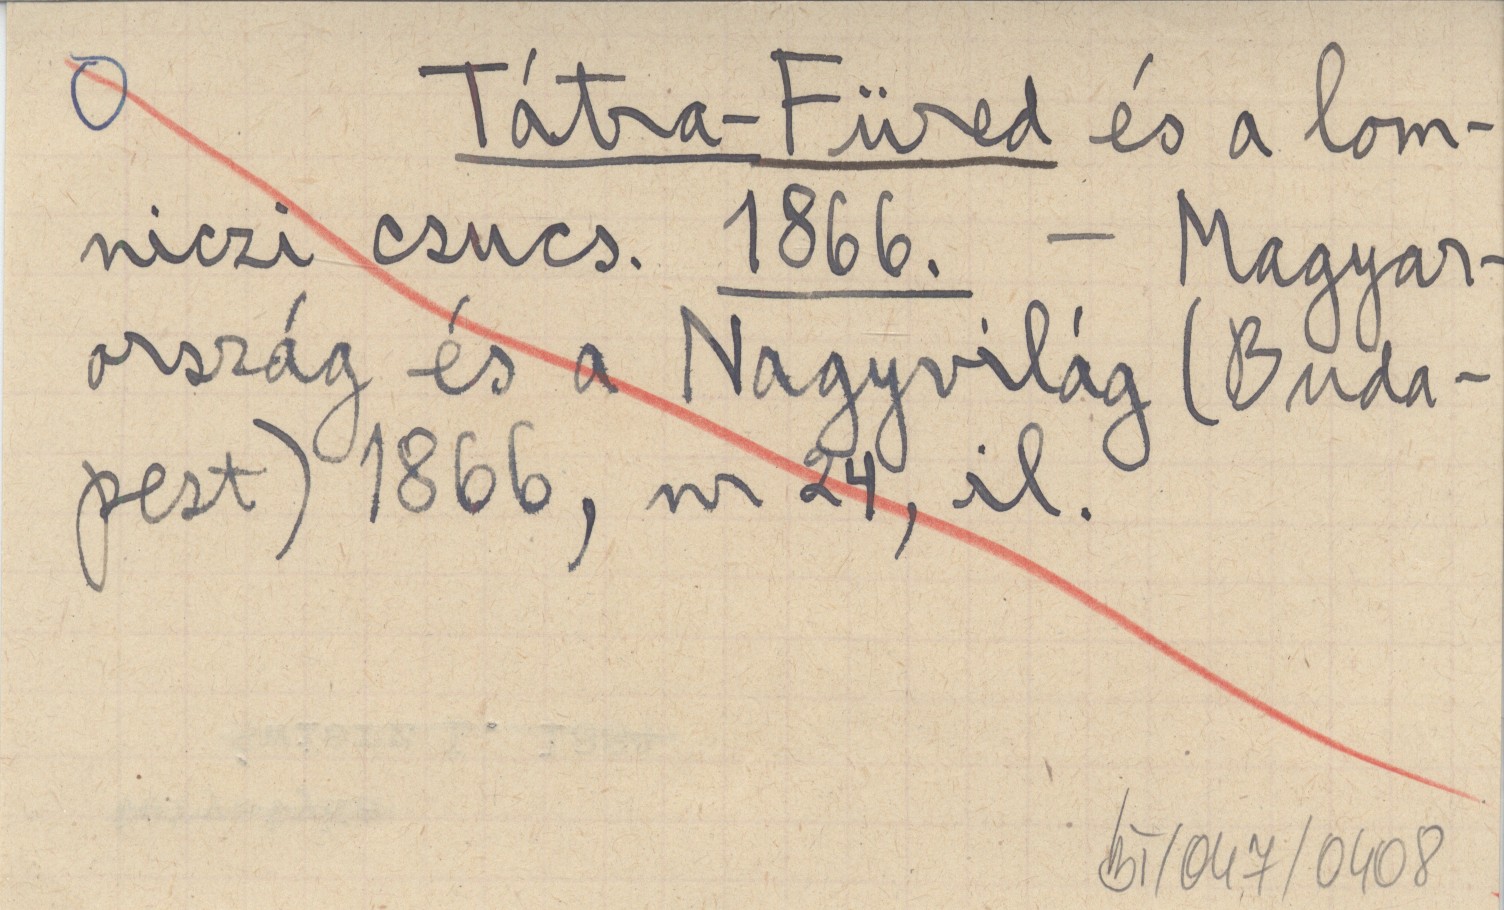 O Tátra-Füred és a lom-
niczi csucs. 1866. — Magyar-
ország és a Nagyvilág (Buda-
pest) 1866, nr 24, il.
BI/047/0408